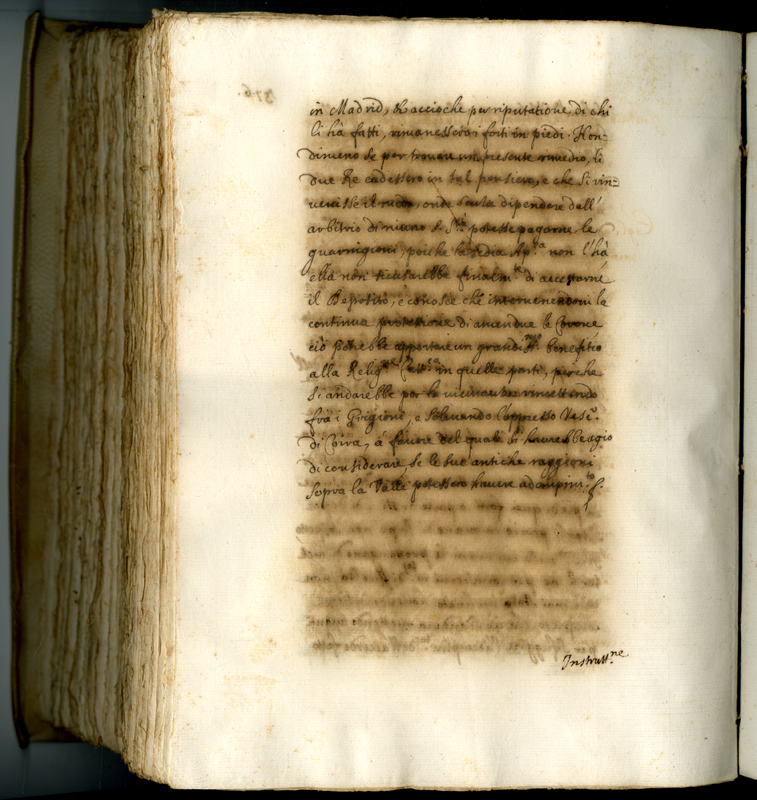 in Madrid, & accioche per riputatione, di chi
li hà fatti, rimanessero i forti in piedi. Non=
dimeno se per trovar un presente rimedio, li
due Re cadessero in tal pensiero, e che si rin=
venisse il modo, onde senza dipendere dall'
arbitrio di niuno S. S.tà potesse pagarne le
guarnigioni, poiche la Sedia Ap.ca non l'hà
ella non ricusarebbe finalm.te di accettarne
il Deposito, e conosce che intervenendoni la
continua protettione di amendue le Corone
ciò potrebbe apportare un grandiss.mo benefitio
alla Relig.ne Catt.ca in quelle parti, perche
si andarebbe per la vicinanza rimettendo
frà i Grigioni, e solevando l'oppresso Vesc.o
di Coira, à favore del quale si haverebbe agio
di considerare, se le sue antiche raggioni
sopra la Valle potessero havere adempim.to
Instrutt.ne